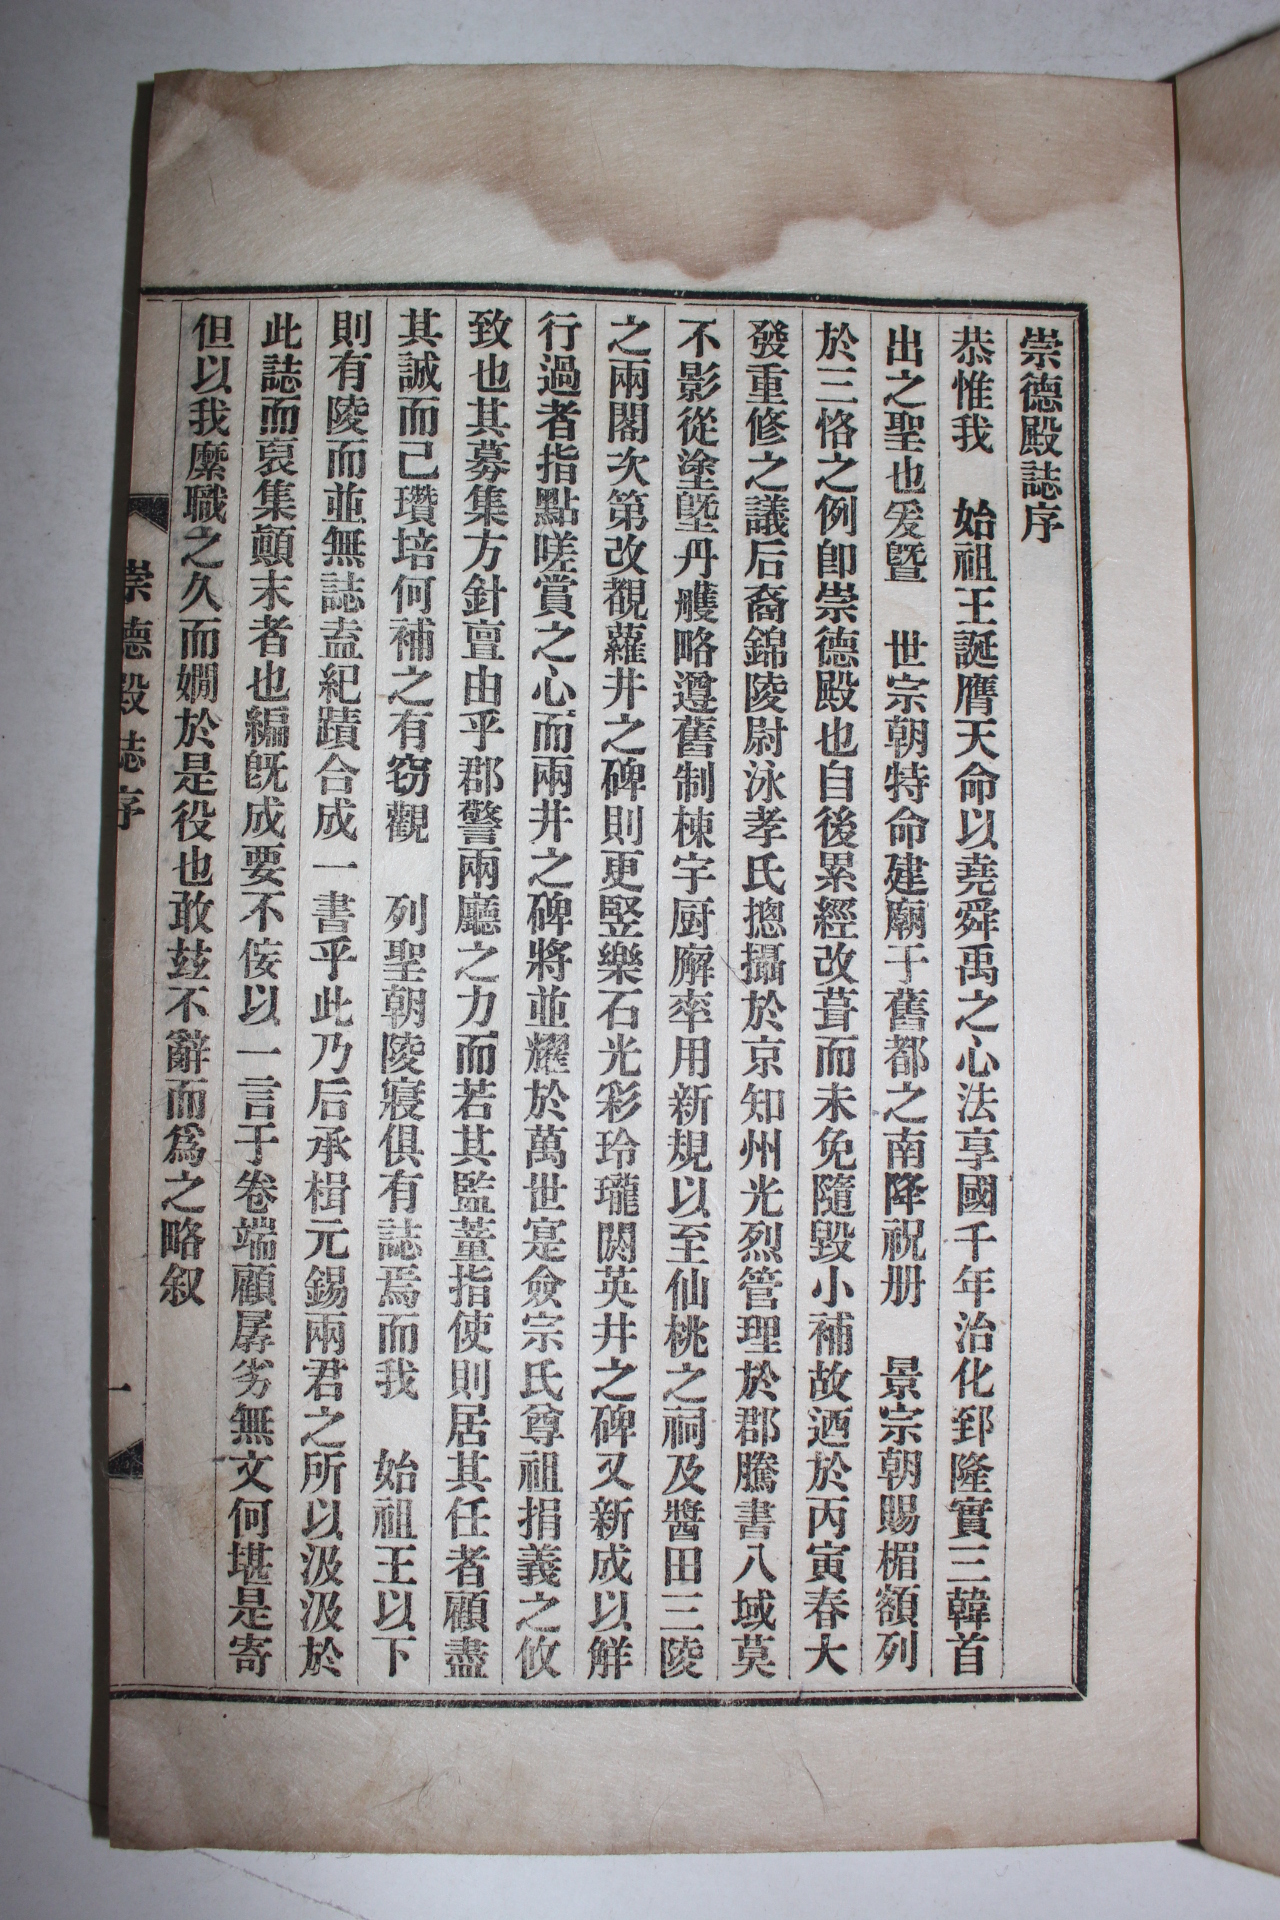 崇德殿誌序
恭惟我 始祖王誕膺天命以堯舜禹之心法享國千年治化郅隆實三韓首
出之聖也爰曁 世宗朝特命建廟于舊都之南降祝册 景宗朝賜楣額列
於三恪之例卽崇德殿也自後累經改葺而未免隨毁小補故迺於丙寅春大
發重修之議后裔錦陵尉泳孝氏摠攝於京知州光烈管理於郡騰書八域莫
不影從塗墍丹雘略遵舊制棟宇厨廨率用新規以至仙桃之祠及醬田三陵
之兩閣次第改觀蘿井之碑則更竪樂石光彩玲瓏閼英井之碑又新成以鮮
行過者指點嗟賞之心而兩井之碑將並耀於萬世寔是僉宗氏尊祖捐義之攸
致也其募集方針亶由乎郡警兩廳之力而若其監董指使則居其任者顧盡
其誠而已瓚培何補之有窃觀 列聖朝陵寢俱有誌焉而我 始祖王以下
則有陵而並無誌盍紀蹟合成一書乎此乃后承楫元錫兩君之所以汲汲於
此誌而裒集顚末者也編旣成要不侫以一言于卷端顧孱劣無文何堪是寄
但以我縻職之久而嫺於是役也敢玆不辭而爲之略叙
崇德殿誌序
一